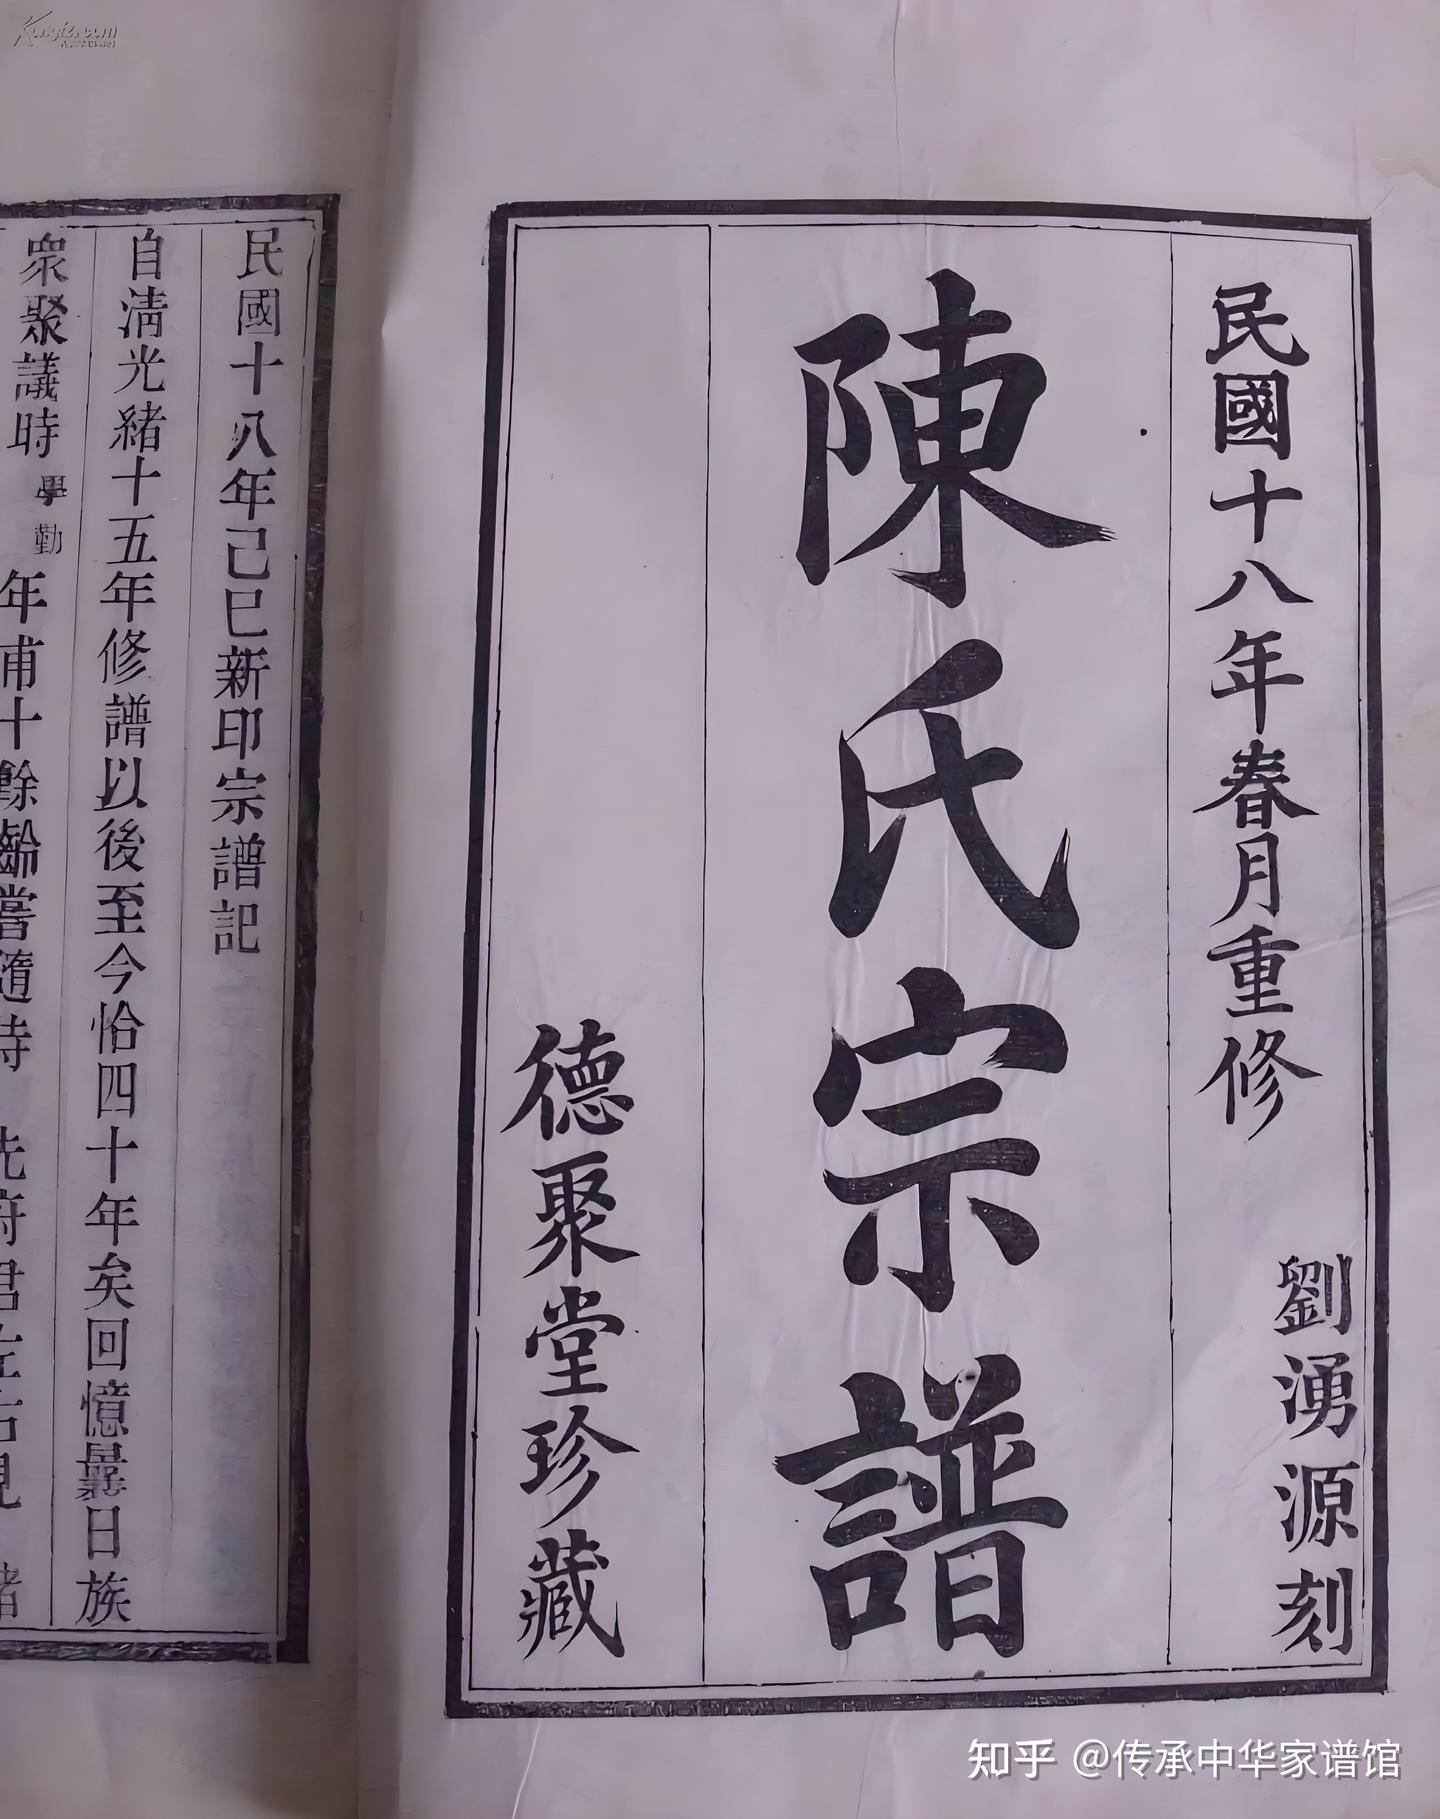 民國十八年春月重修
劉湧源刻
陳氏宗譜
德聚堂珍藏
民國十八年己巳新印宗譜記
自淸光緒十五年修譜以後至今恰四十年矣回憶曩日族
衆聚議時學勤年甫十餘齡嘗隨侍先府君左右見
知乎 @传承中华家谱馆